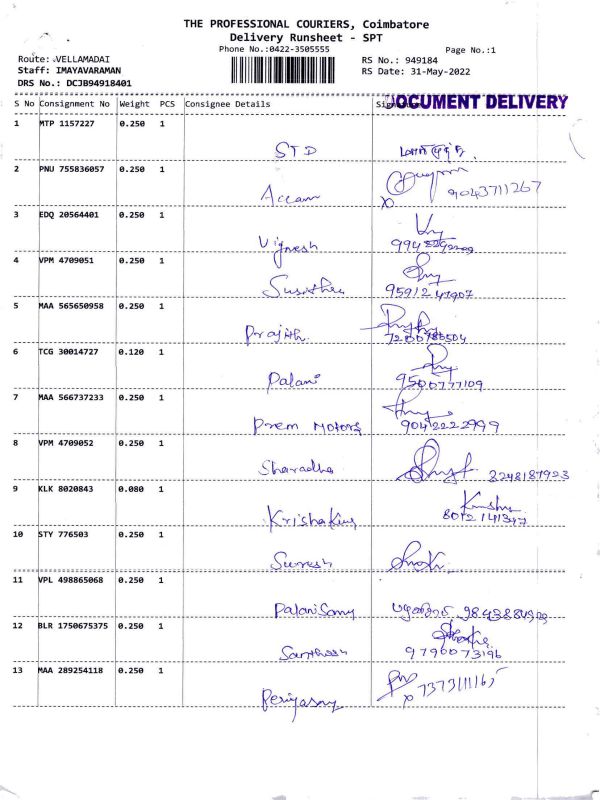 THE PROFESSIONAL COURIERS, Coimbatore
Delivery Runsheet - SPT
Phone No.:0422-3505555
Page No.:1
Route: VELLAMADAI
RS No.: 949184
Staff: IMAYAVARAMAN
RS Date: 31-May-2022
DRS No.: DCJB94918401
DOCUMENT DELIVERY
S No Consignment No Weight PCS Consignee Details
1 MTP 1157227 0.250 1
STD
2 PNU 755836057 0.250 1
9043711267
3 EDQ 20564401 0.250 1
Vignesh
4 VPM 4709051 0.250 1
5 MAA 565650958 0.250 1
Prajith
6 TCG 30014727 0.120 1
Palani
9500777109
7 MAA 566737233 0.250 1
Prem Motors 9042222999
8 VPM 4709052 0.250 1
Sharadha 8248187923
9 KLK 8020843 0.080 1
8012141347
10 STY 776503 0.250 1
Suresh
11 VPL 498865068 0.250 1
PalaniSamy
12 BLR 1750675375 0.250 1
9790073196
13 MAA 289254118 0.250 1
7373111165